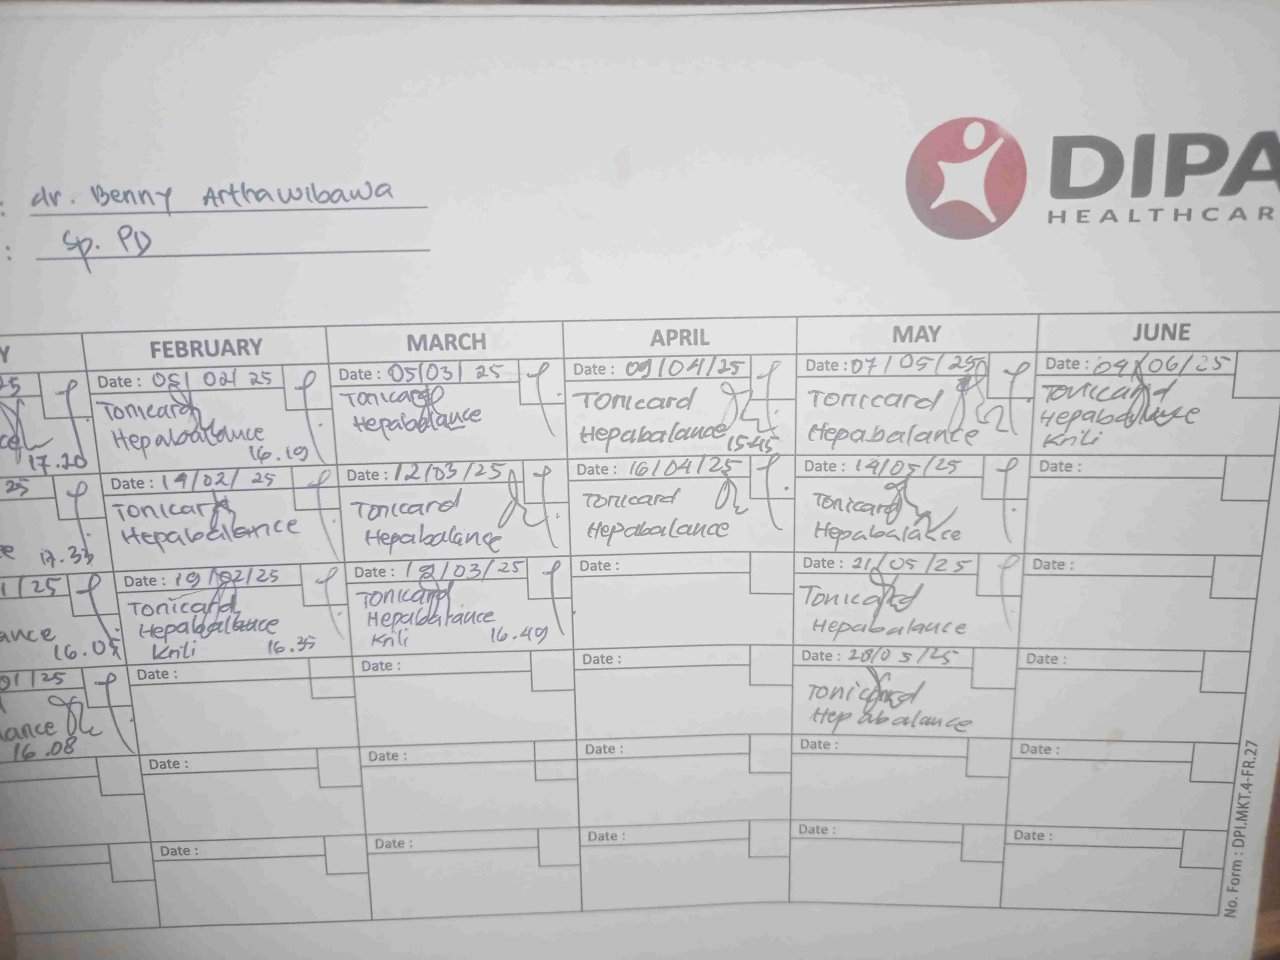 : dr. Benny Arthawibawa
: Sp. PD
DIPA
HEALTHCAR
Y FEBRUARY MARCH APRIL MAY JUNE
25
17.20
Date : 05/02/25
Tonicard
Hepabalance
16.19
Date : 05/03/25
Tonicard
Hepabalance
Date : 09/04/25
Tonicard
Hepabalance
15.45
Date : 07/05/25
Tonicard
Hepabalance
Date : 04/06/25
Tonicard
Hepabalance
Krili
25
17.33
Date : 14/02/25
Tonicard
Hepabalance
Date : 12/03/25
Tonicard
Hepabalance
Date : 16/04/25
Tonicard
Hepabalance
Date : 14/05/25
Tonicard
Hepabalance
Date :
1/25
ance
16.05
Date : 19/02/25
Tonicard
Hepabalance
Krili
16.35
Date : 19/03/25
Tonicard
Hepabalance
Krili
16.49
Date :
Date : 21/05/25
Tonicard
Hepabalance
Date :
01/25
lance
16.08
Date :
Date :
Date :
Date : 28/05/25
Tonicard
Hepabalance
Date :
Date :
Date :
Date :
Date :
Date :
Date :
Date :
Date :
Date :
Date :
No. Form : DPI.MKT.4-FR.27